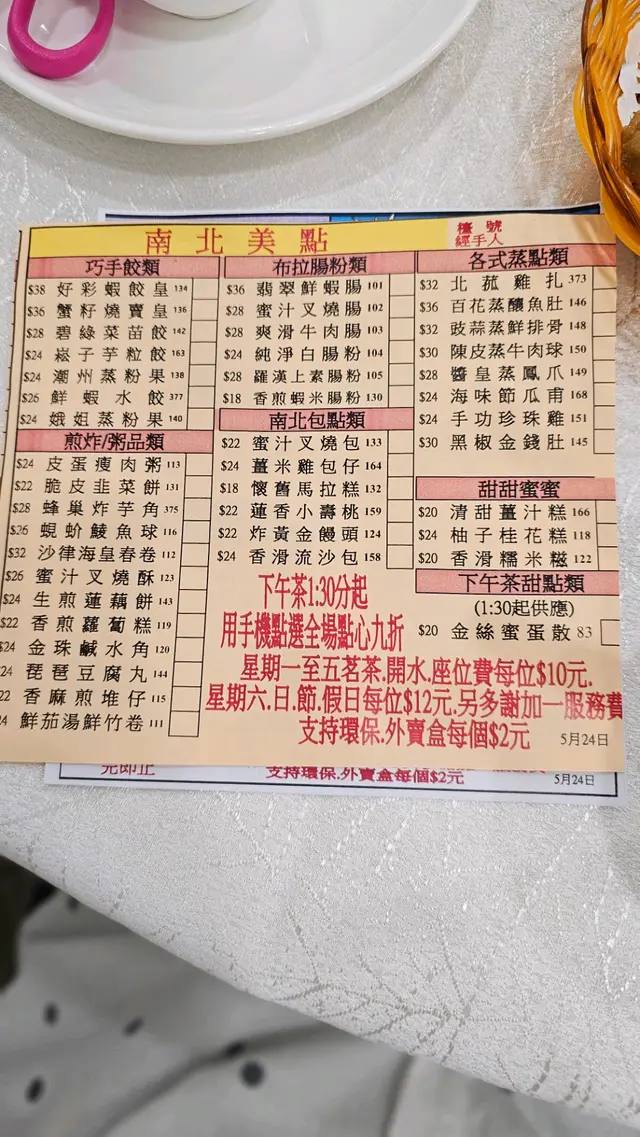 南北美點
檯號
經手人
巧手餃類
$38 好彩蝦餃皇 134
$36 蟹籽燒賣皇 136
$28 碧綠菜苗餃 142
$24 崧子芋粒餃 163
$24 潮州蒸粉果 138
$26 鮮蝦水餃 377
$24 娥姐蒸粉果 140
煎炸/粥品類
$24 皮蛋瘦肉粥 113
$22 脆皮韭菜餅 131
$28 蜂巢炸芋角 375
$26 蜆蚧鯪魚球 116
$32 沙律海皇春卷 112
$26 蜜汁叉燒酥 123
$24 生煎蓮藕餅 143
$22 香煎蘿蔔糕 119
$24 金珠鹹水角 120
24 琵琶豆腐丸 144
22 香麻煎堆仔 115
24 鮮茄湯鮮竹卷 111
布拉腸粉類
$36 翡翠鮮蝦腸 101
$28 蜜汁叉燒腸 102
$28 爽滑牛肉腸 103
$24 純淨白腸粉 104
$28 羅漢上素腸粉 105
$18 香煎蝦米腸粉 130
南北包點類
$22 蜜汁叉燒包 133
$24 薑米雞包仔 164
$18 懷舊馬拉糕 132
$22 蓮香小壽桃 159
$22 炸黃金饅頭 124
$24 香滑流沙包 158
各式蒸點類
$32 北菰雞扎 373
$36 百花蒸釀魚肚 146
$32 豉蒜蒸鮮排骨 148
$30 陳皮蒸牛肉球 150
$28 醬皇蒸鳳爪 149
$24 海味節瓜甫 168
$24 手功珍珠雞 151
$30 黑椒金錢肚 145
甜甜蜜蜜
$20 清甜薑汁糕 166
$24 柚子桂花糕 118
$20 香滑糯米糍 122
下午茶甜點類
(1:30起供應)
$20 金絲蜜蛋散 83
下午茶1:30分起
用手機點選全場點心九折
星期一至五茗茶.開水.座位費每位$10元.
星期六.日.節.假日每位$12元.另多謝加一服務費
支持環保.外賣盒每個$2元
5月24日
完即止
支持環保.外賣盒每個$2元
5月24日